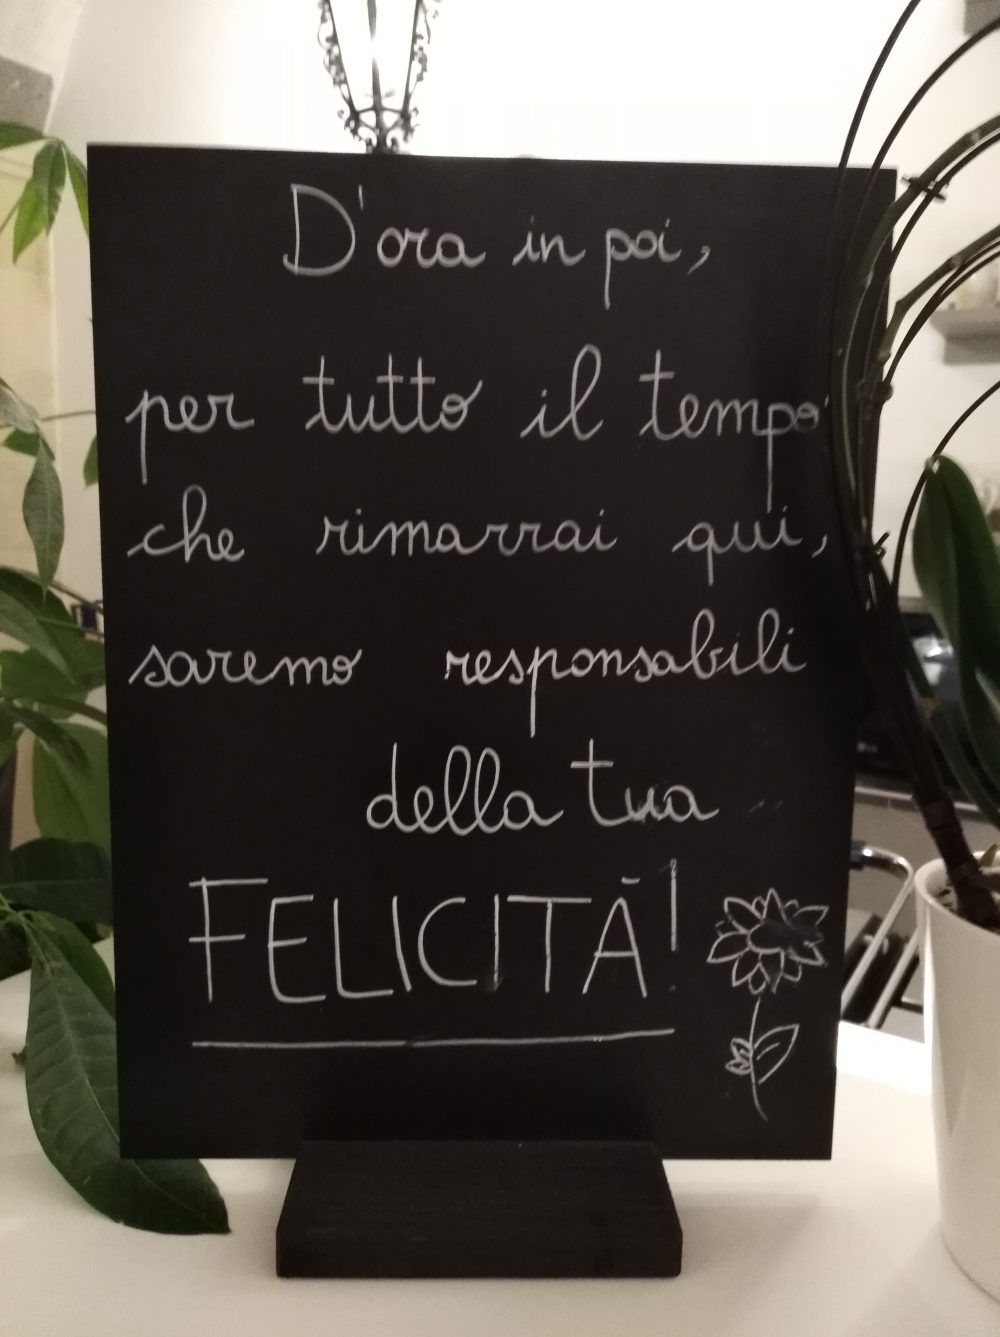 D'ora in poi,
per tutto il tempo
che rimarrai qui,
saremo responsabili
della tua
FELICITÀ!